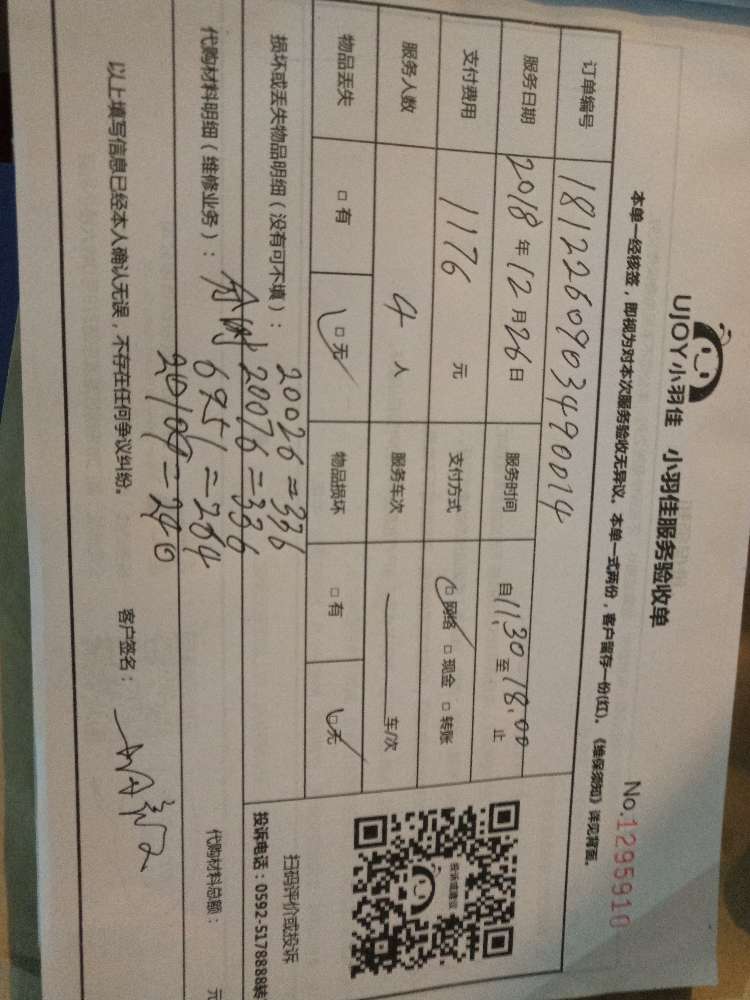 UJOY小羽佳 小羽佳服务验收单
No.1295910
本单一经核签，即视为对本次服务验收无异议。本单一式两份，客户留存一份(红)。《维保须知》详见背面。
订单编号 1812260903490014
服务日期 2018 年 12 月 26 日 服务时间 自 11.30 至 18.00 止
支付费用 1176 元 支付方式 ☑ 网络 □ 现金 □ 转账
服务人数 4 人 服务车次 — 车/次
物品丢失 □ 有 ☑ 无 物品损坏 □ 有 ☑ 无
损坏或丢失物品明细（没有可不填）：
20026 = 336
20076 = 336
代购材料明细（维修业务）：
6951 = 264
代购材料总额： 元
= 240
以上填写信息已经本人确认无误，不存在任何争议纠纷。
客户签名：
投诉或建议
扫码评价或投诉
投诉电话：0592-5178888转